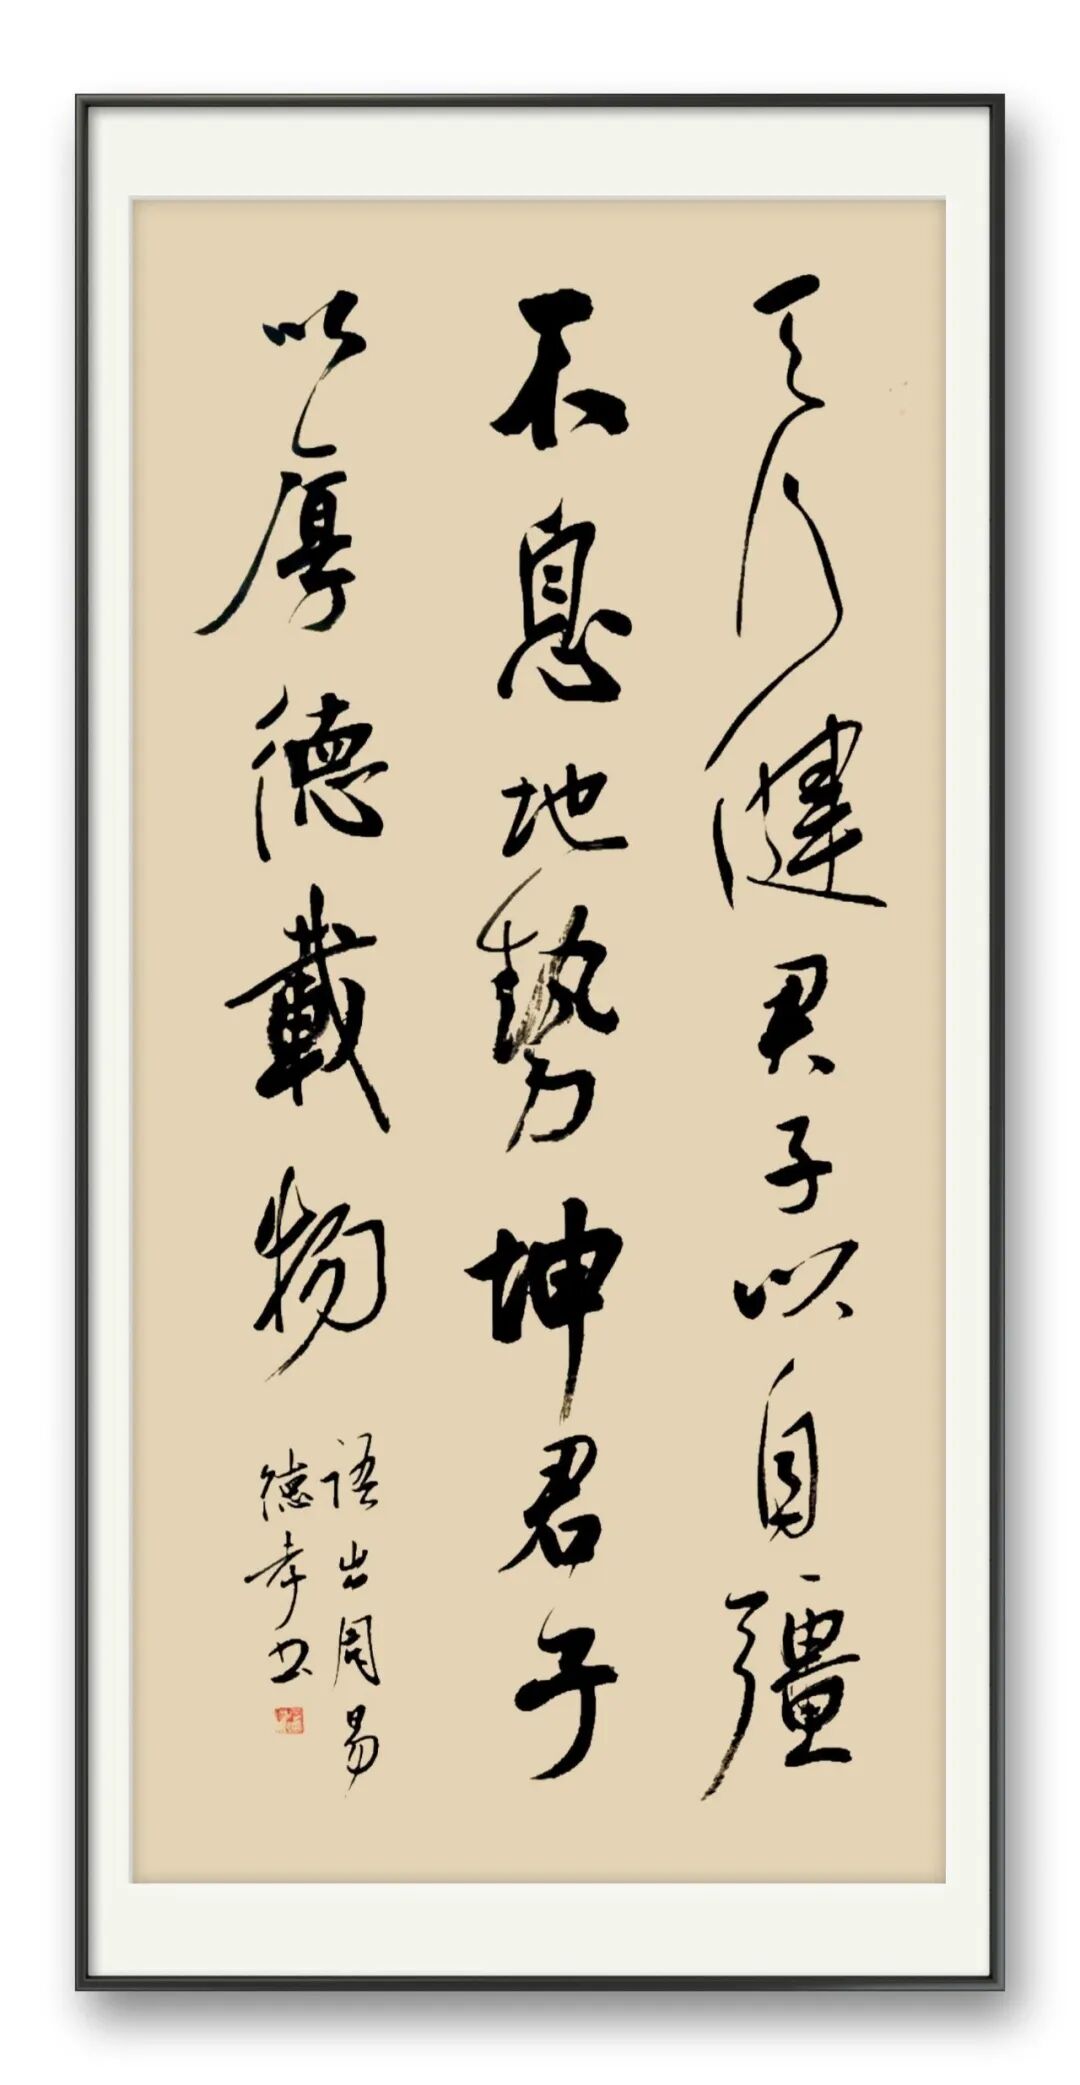 天行健君子以自彊
不息地勢坤君子
以厚德載物
語出周易
德孝书